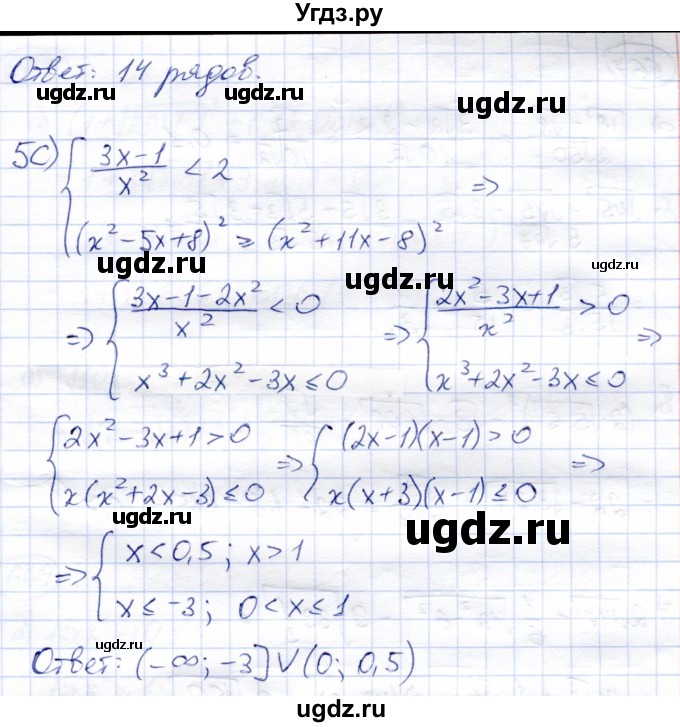 Угдз.ру
Ответ: 14 рядов.
ugdz.ru ugdz.ru
5C) { (3x-1)/x² < 2
(x²-5x+8)² ≥ (x²+11x-8)² =>
ugdz.ru ugdz.ru ugdz.ru
=> { (3x-1-2x²)/x² < 0
x³+2x²-3x ≤ 0
=> { (2x²-3x+1)/x² > 0
x³+2x²-3x ≤ 0 =>
ugdz.ru ugdz.ru
{ 2x²-3x+1>0
x(x²+2x-3) ≤ 0
=> { (2x-1)(x-1)>0
x(x+3)(x-1) ≤ 0 =>
ugdz.ru ugdz.ru
=> { x<0,5; x>1
x ≤ -3; 0<x≤1
ugdz.ru ugdz.ru
Ответ: (-∞; -3]∨(0; 0,5)
ugdz.ru